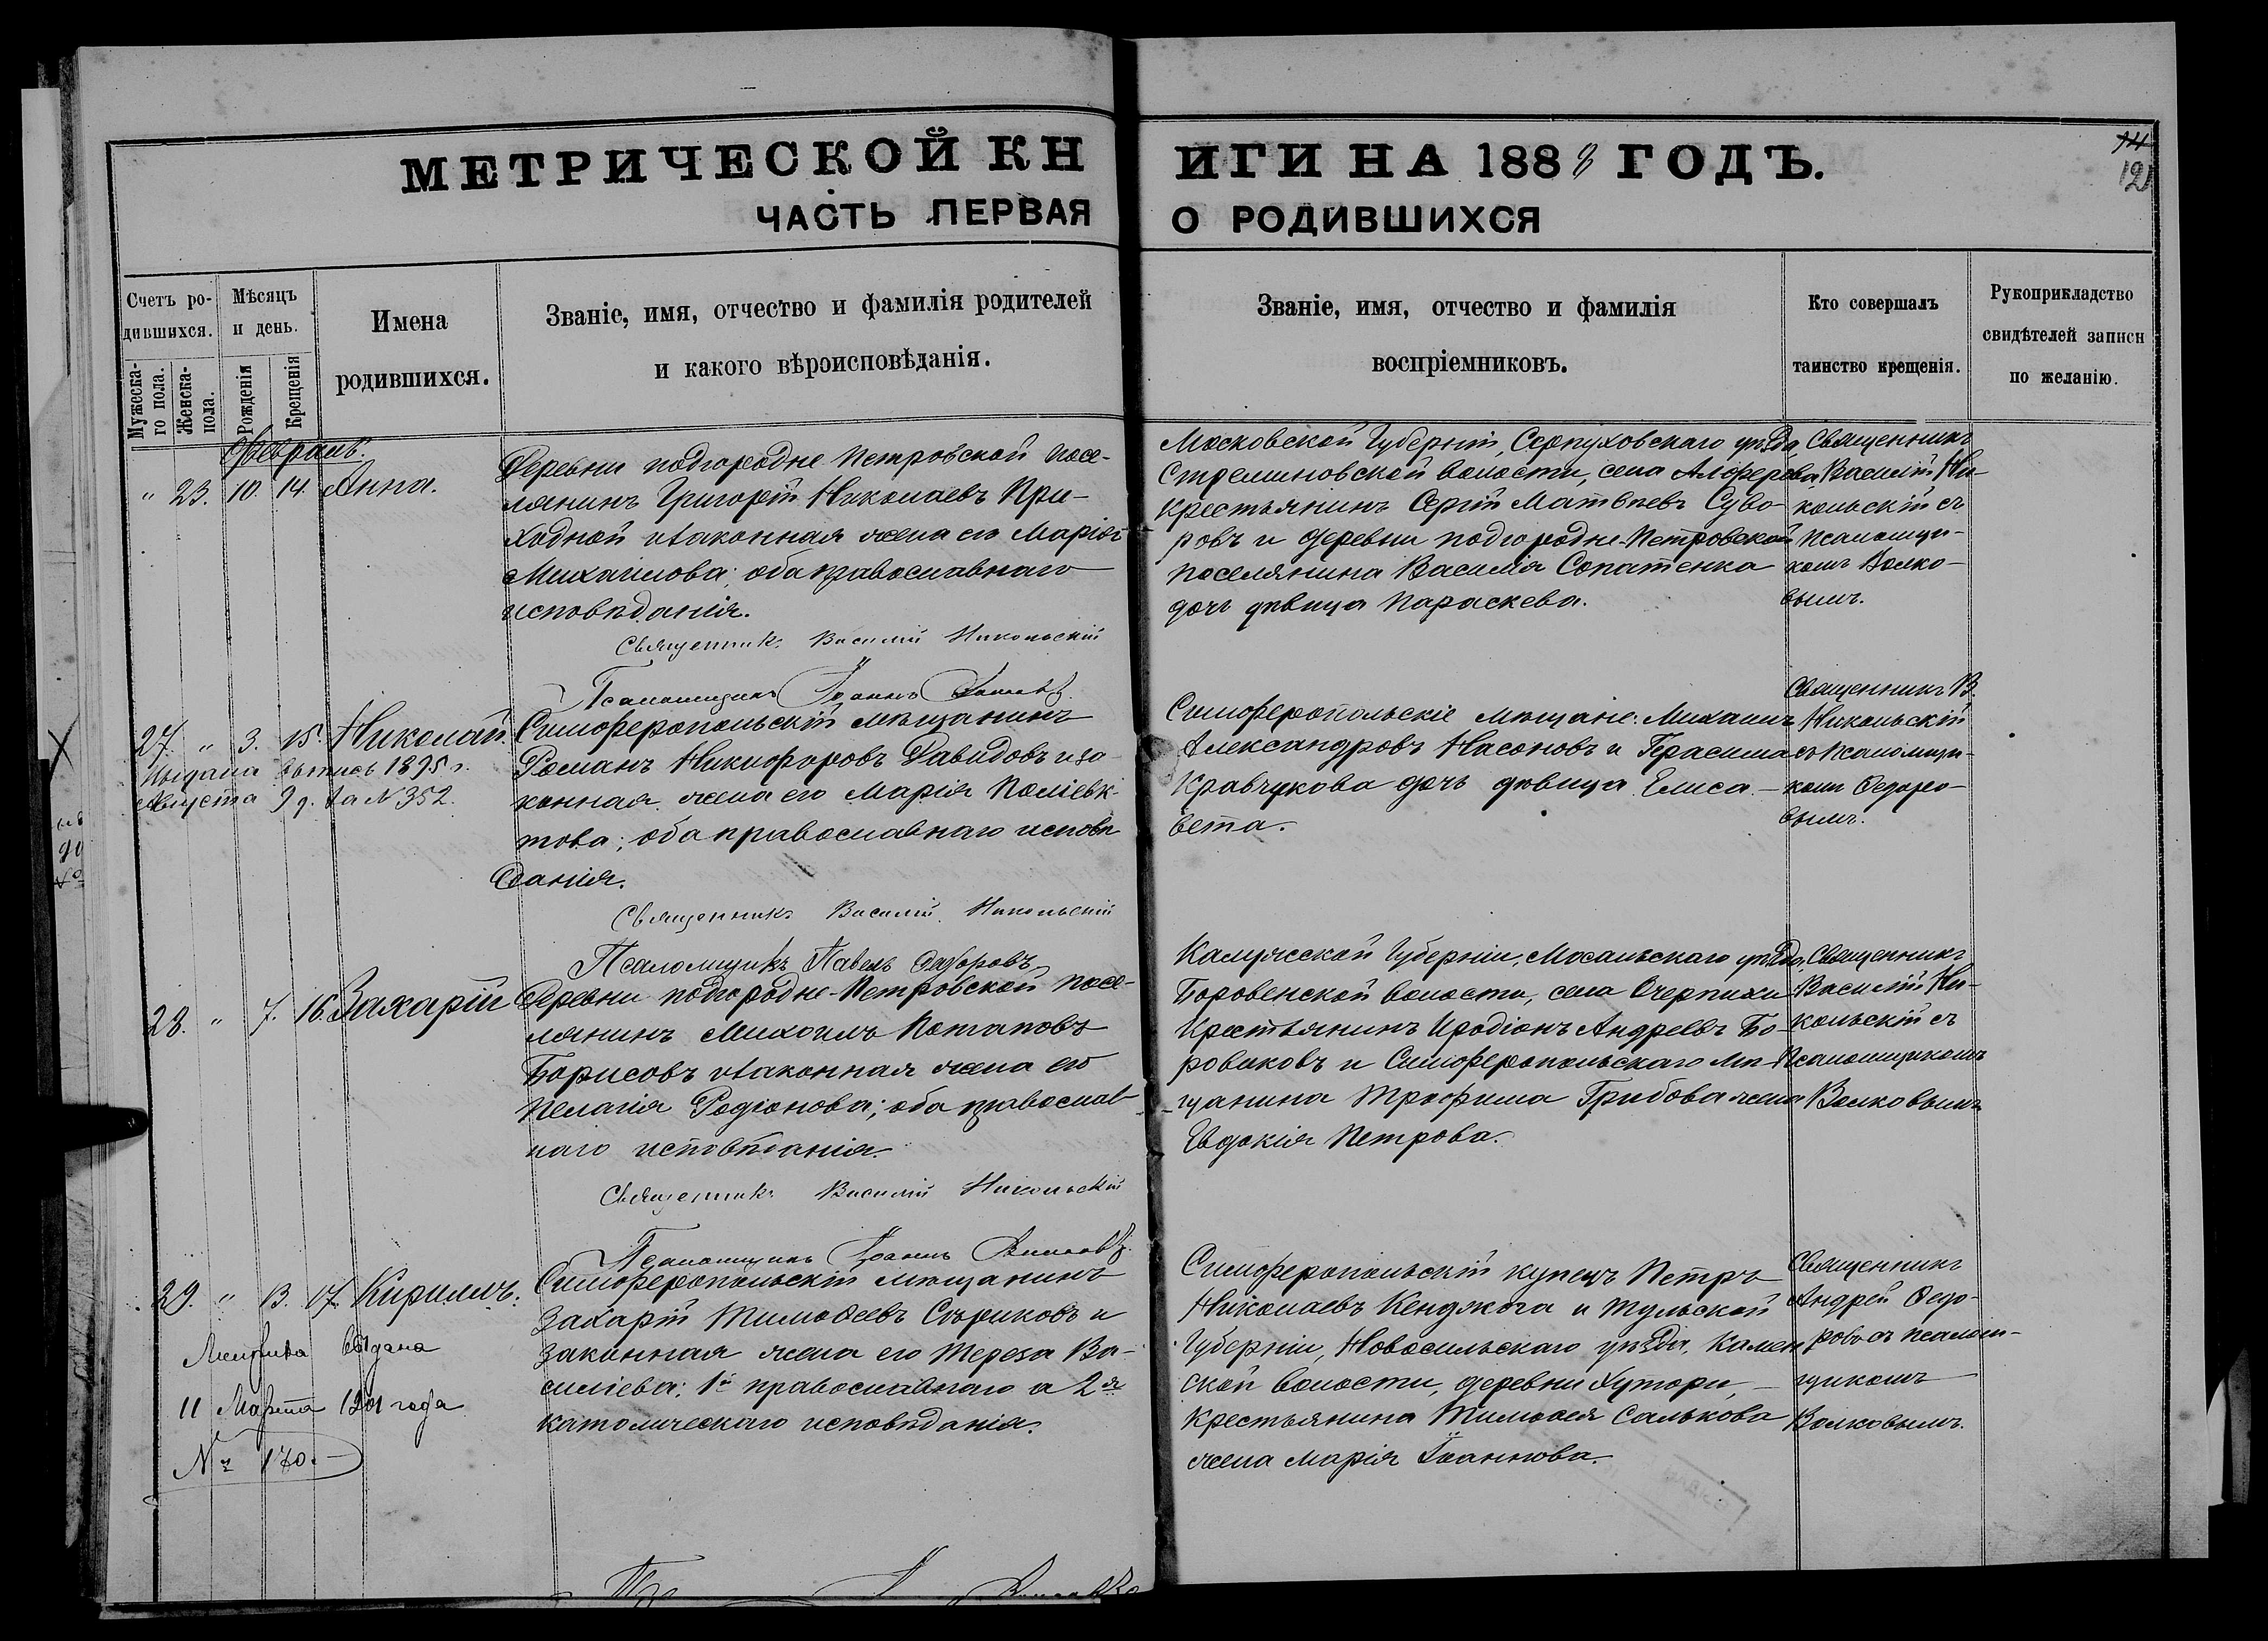 МЕТРИЧЕСКОЙ КНИГИ НА 1888 ГОДЪ.
ЧАСТЬ ПЕРВАЯ О РОДИВШИХСЯ
121
Счетъ ро-
дившихся.
Мужеска-
го пола.
Женска-
пола.
Мѣсяцъ
и день.
Рожденія
Крещенія
Имена
родившихся.
Званіе, имя, отчество и фамилія родителей
и какого вѣроисповѣданія.
Званіе, имя, отчество и фамилія
воспріемниковъ.
Кто совершалъ
таинство крещенія.
Рукоприкладство
свидѣтелей записи
по желанію.
Февраль.
" 23. 10. 14. Анна.
Деревни подгородне-Петровской посе-
лянинъ Григорій Николаевъ При-
ходной и законная жена его Марія
Михаилова; оба православнаго
исповѣданія.
Священникъ Василій Никольскій
Псаломщикъ Іоаннъ
Московской Губерніи, Серпуховскаго уѣзда,
Стремиловской волости, села Алферова
крестьянинъ Сергій Матвѣевъ Суво-
ровъ и деревни подгородне-Петровской
поселянина Василія Сопатенка
дочь дѣвица Параскева.
Священникъ
Василій Ни-
кольскій съ
псаломщи-
комъ Волко-
вымъ.
27. " 3. 15. Николай.
Выдана выпись 1895 г.
Августа 9 д. за № 352.
Симферопольскій мѣщанинъ
Романъ Никифоровъ Давидовъ и за-
конная жена его Марія Поліевк-
това; оба православнаго исповѣ
данія.
Священникъ Василій Никольскій
Псаломщикъ Павелъ Федоровъ
Симферопольскіе мѣщане: Михаилъ
Александровъ Насоновъ и Герасима
Кравчукова дочь дѣвица Елиса-
вета.
Священникъ В.
Никольскій
съ псаломщи-
комъ Ѳедоро-
вымъ.
28. " 7. 16. Захарій
Деревни подгородне-Петровской посе-
лянинъ Михаилъ Потаповъ
Борисовъ и законная жена его
Пелагія Родіонова; оба православ-
наго исповѣданія.
Священникъ Василій Никольскій
Псаломщикъ Іоаннъ
Калужской Губерніи, Мосальскаго уѣзда,
Боровенской волости, села
Крестьянинъ Иродіонъ Андреевъ Бо-
ровиковъ и Симферопольскаго мѣ-
щанина Трофима Грибова жена
Евдокія Петрова.
Священникъ
Василій Ни-
кольскій съ
Псаломщикомъ
Волковымъ
29. " 13. 17. Кириллъ.
Метрика выдана
11 Марта 1901 года
№ 170.
Симферопольскій мѣщанинъ
Захарій Тимоѳеевъ Стариковъ и
законная жена его Тереза Ва-
силіева; 1й православнаго а 2я
католическаго исповѣданія.
Симферопольскій купецъ Петръ
Николаевъ Кенджога и Тульской
Губерніи, Новосильскаго уѣзда, Камен
ской волости, деревни Хутори,
крестьянина Тимоѳея Салькова
жена Марія Іоаннова.
Священникъ
Андрей Ѳедо-
ровъ съ псалом-
щикомъ
Волковымъ.